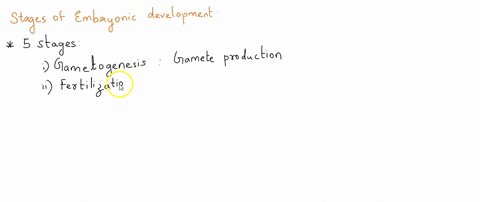 Stages of Embryonic development:
* 5 stages:
i) Gametogenesis : Gamete production
ii) Fertilizatio